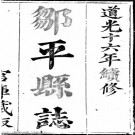 道光十六年續修
鄒平縣誌
官庫藏板